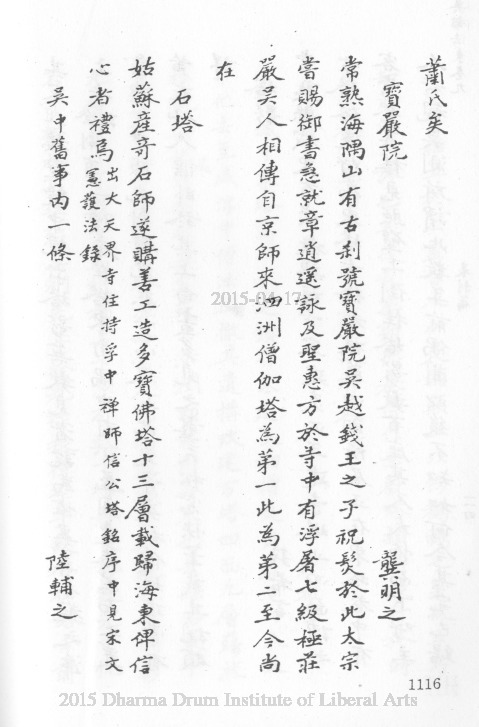 蕭氏矣
寶嚴院 龔明之
常熟海隅山有古刹號寶嚴院吳越錢王之子祝髮於此太宗
嘗賜御書急就章逍遙詠及聖惠方於寺中有浮屠七級極莊
嚴吳人相傳自京師來泗洲僧伽塔為第一此為第二至今尚
在
石塔
姑蘇產奇石師遂購善工造多寶佛塔十三層載歸海東俾信
心者禮焉出大天界寺住持孚中禅師信公塔銘序中見宋文
憲護法錄
吳中舊事內一條 陸輔之
2015-04-17
1116
2015 Dharma Drum Institute of Liberal Arts